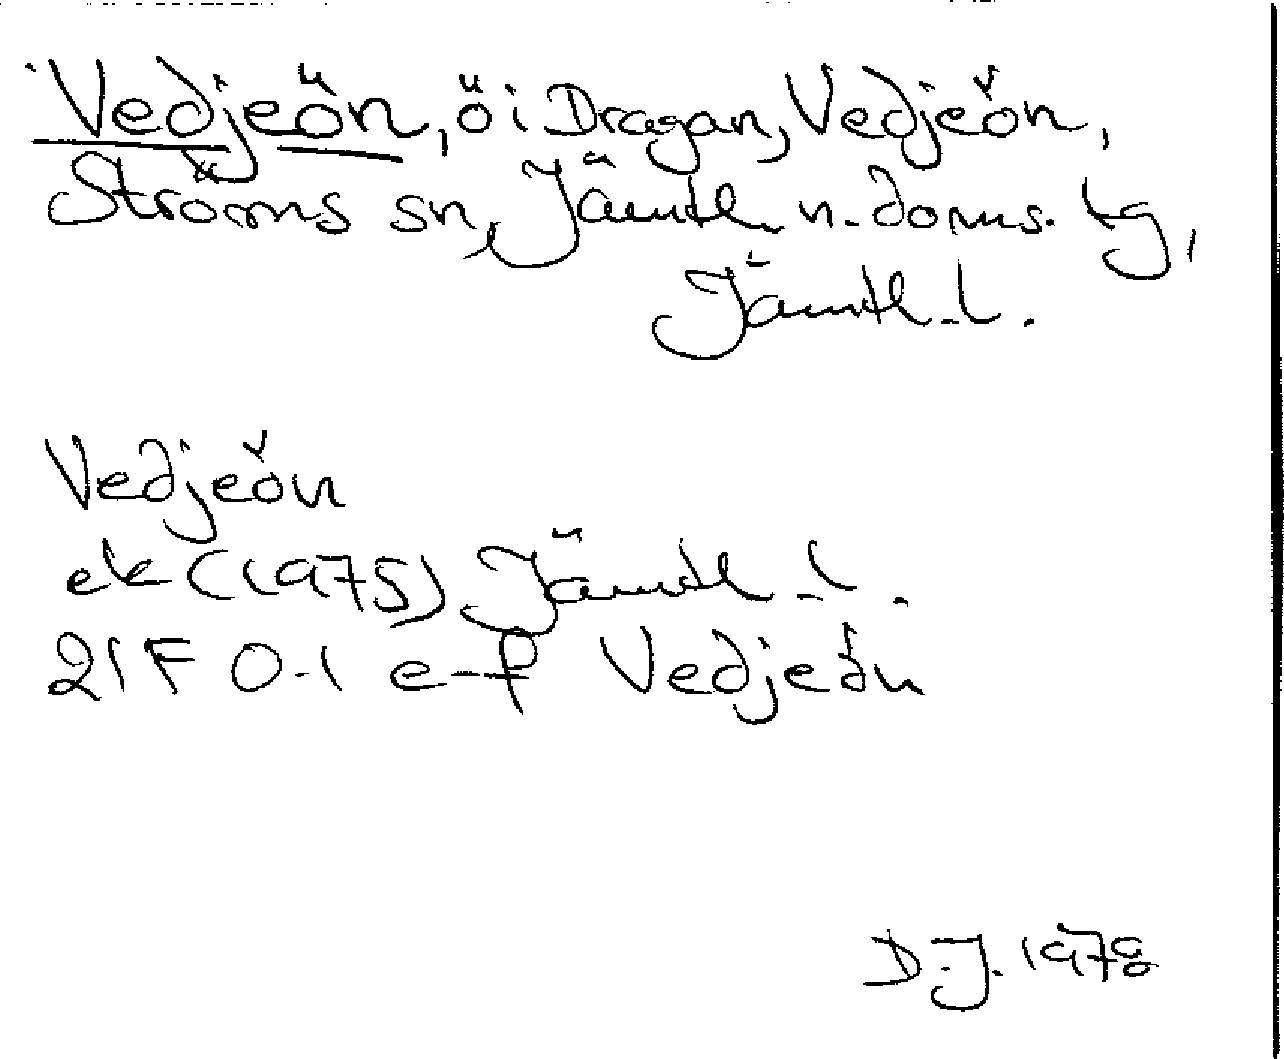 Vedjeön, ö i Dragan, Vedjeön,
Ströms sn, Jämtl. n. doms. tg,
Jämtl. l.
Vedjeön
ek (1975) Jämtl. l.
21F 0-1 e-f Vedjeön
D.J. 1978